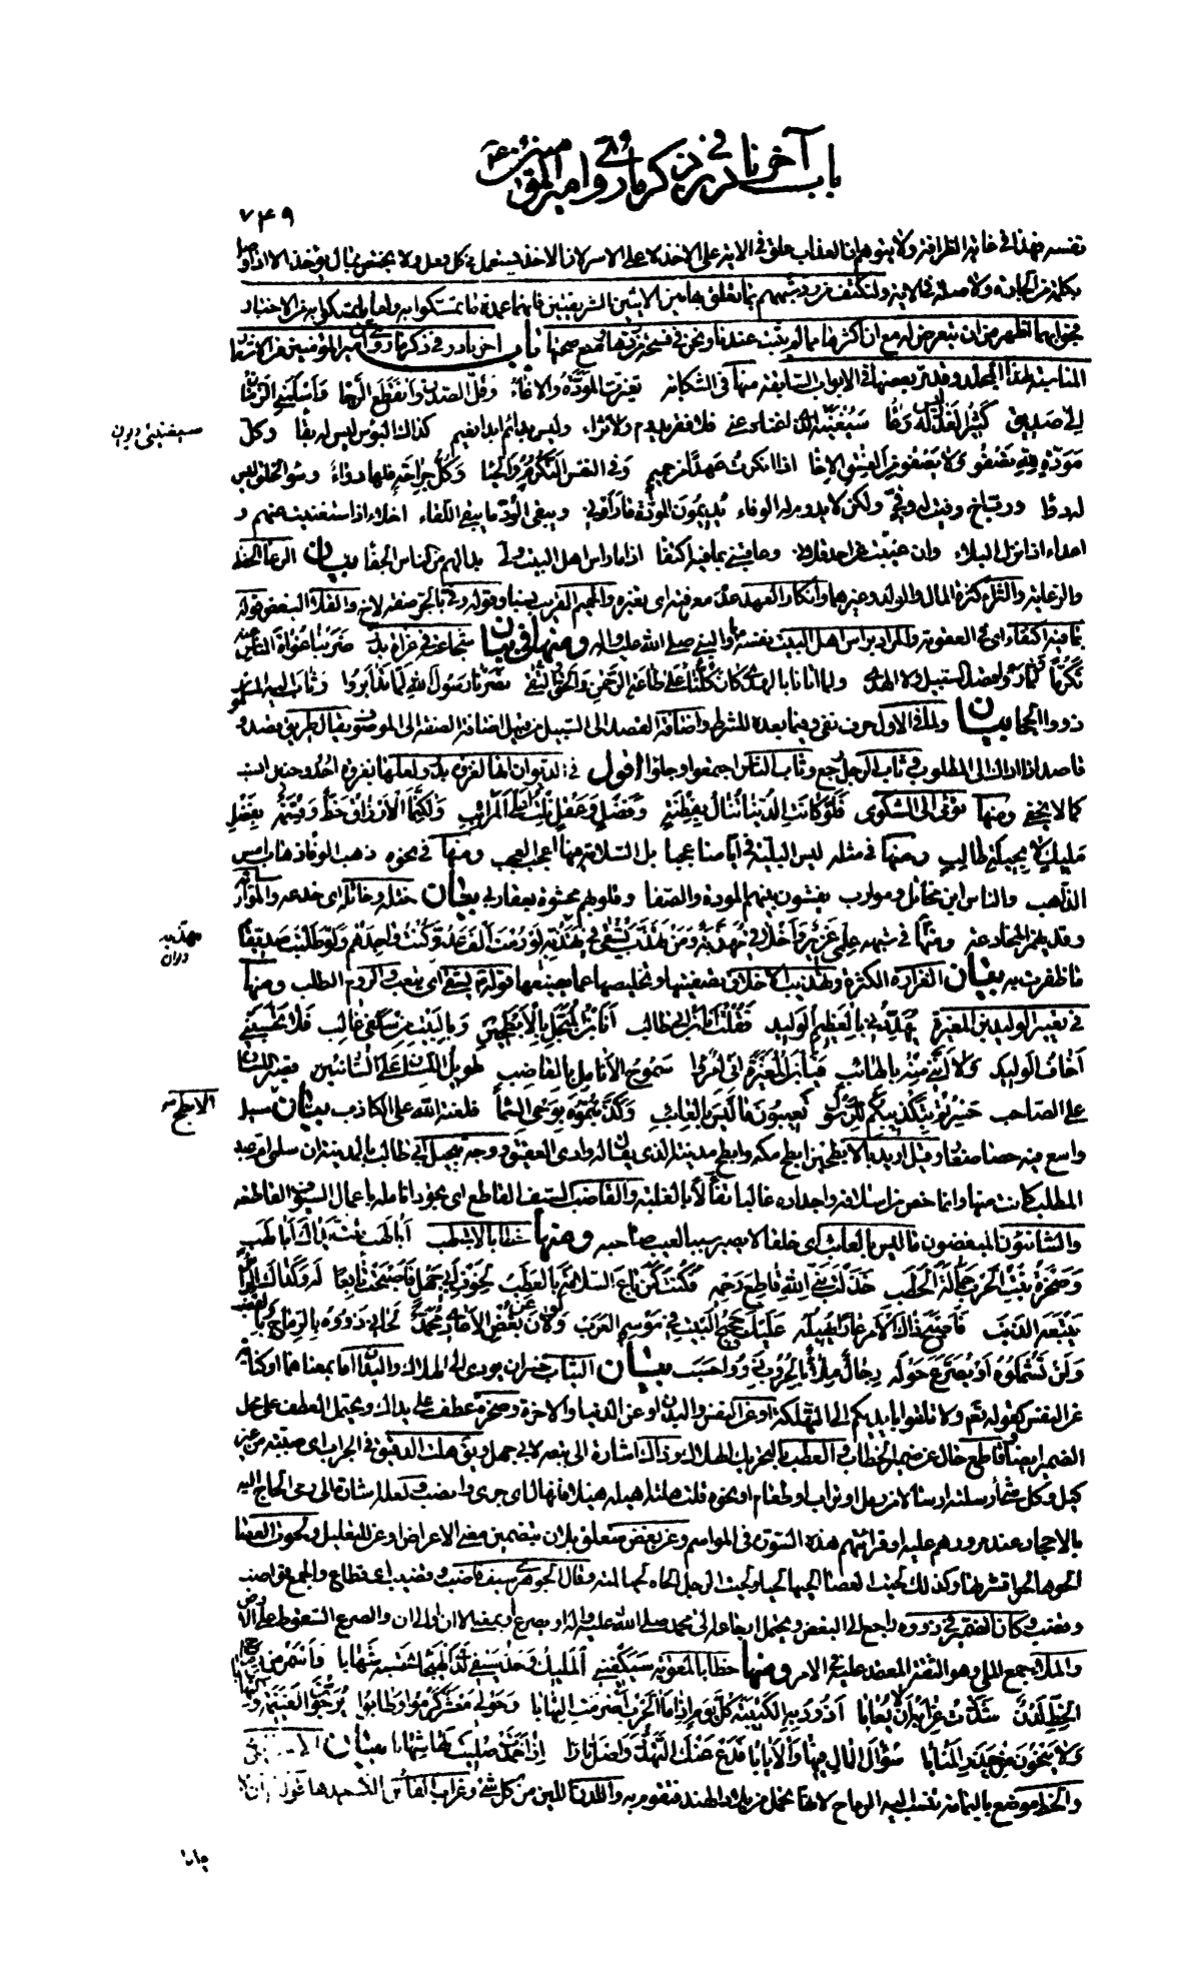 باب آخر نادر في ذكر ما روي عن امير المؤمنين ع
٧٤٩
نفسه فهذا في غاية الظرافة ولا يتوهم ان العذاب علق في الاية على الاخذ لا على الاسر لان الاخذ يستعمل في كل فعل ولا يختص بالاخذ
ولا صلة في الاية ولنكتف
مع ان اكثرها مما لم يثبت عندنا ونحن في فسحة من صحتها باب آخر نادر في ذكر ما روي عن امير المؤمنين من الاشعار
المناسبة لهذا المجلد وقد مر بعضها في الابواب السابقة منها في الشكاية تغيرت المودة والاخاء وقل الصدق وانقطع الرجا واسلمني الزمان
الى صديق كثير الغدر ليس له رعاء سيغنيني الذي اغناه عني فلا فقر يدوم ولا ثراء وليس بدائم ابدا نعيم كذاك البؤس ليس له بقا وكل
مودة لله تصفو ولا يصفو من الفسق الاخا اذا انكرت عهدا من حميم وفي النفس التكرم والحيا وكل جراحة فلها دواء وسوء الخلق ليس
له دوا ورب اخ وفيت له وفي ولكن لا يدوم له الوفاء يديمون المودة ما راوني ويبقى الود ما بقي اللقاء اخلاء اذا استغنيت عنهم و
اعداء اذا نزل البلاء وان غيبت عن احد قلاني وعاقبني بما فيه اكتفا اذا ما راس اهل البيت ولى بدا لهم من الناس الجفا بيان الرعا الحفظ
والرعاية والثراء كثرة المال والولد وغيرهما وانكار العهد عدم معرفته اي تغيره والحميم القريب نسبا وقوله وفي بالجر صفة لاخ والقلاء البغض قوله
بما فيه اكتفاء اي في العقوبة والمراد براس اهل البيت نفسه او النبي صلى الله عليه واله ومنها في بيان شجاعته في غزاة بدر ضربنا غواة الناس عنه
تكرما ولما راوا قصد السبيل ولا الهدى ولما اتانا بالهدى كان كلنا على طاعة الرحمن والحق والتقى نصرنا رسول الله لما تدابروا وثاب اليه المسلمون
ذوو الحجا بيان ولما في الاول حرف نفي وفيما بعده للشرط واضافة القصد الى السبيل من قبيل اضافة الصفة الى الموصوف يقال طريق قصد و
قاصد اذا اداك الى المطلوب وثاب الرجل رجع وثاب الناس اجتمعوا وجاؤا اقول في الديوان انها لغزوة بدر ولعلها بغزوة احد وحنين انسب
كما لا يخفى ومنها فلو كانت الدنيا تنال بفطنة وفضل وعقل نلت اعلى المراتب ولكنما الارزاق حظ وقسمة بفضل
مليك لا بحيلة طالب ومنها في مثله ليس البلية في ايامنا عجبا بل السلامة فيها اعجب العجب ومنها في نحوه ذهب الوفاء ذهاب امس
الذاهب والناس بين مخاتل وموارب يفشون بينهم المودة والصفا وقلوبهم محشوة بعقارب بيان ختله وخاتله اي خدعه والموارب
ومنها في شبهه علمي غزير واخلاقي مهذبة ومن تهذب يشقى في تهذبه لو رمت الف عدو كنت واجدهم ولو طلبت صديقا
ما ظفرت به بيان الغزارة الكثرة وتهذيب الاخلاق تصفيتها وتخليصها عما يضيعها قوله يشقى اي يتعب والروم الطلب ومنها
في تعيير الوليد بن المغيرة يهددني بالعظيم الوليد فقلت انا ابن ابي طالب انا ابن المبجل بالابطحين وبالبيت من سلفي غالب فلا تحسبني
اخاف الوليد ولا انني منه بالهائب فيا بن المغيرة اني امرؤ سموح الانامل بالقاضب طويل اللسان على الشانئين قصير اللسان
على الصاحب خسرتم بتكذيبكم للرسول تعيبون ما ليس بالعائب وكذبتموه بوحي السما فلعنة الله على الكاذب بيان مسيل
واسع فيه حصا صغار وقيل اريد بالابطحين ابطح مكة وابطح مدينة الذي يقال له وادي العقيق ووجه تبجيل ابي طالب بالمدينة ان سلمى ام عبد
المطلب كانت منها وانما خص من اسلافه واجداده غالبا تفألا بالغلبة والقاضب السيف القاطع اي يجود انامله باعمال السيوف القاطعة
والشانئون المبغضون ما ليس بالعائب اي خلقا لا يصير سببا لعيب صاحبه ومنها خطابا لابي لهب ابا لهب تبت يداك ابا لهب
وصخرة بنت الحرب حمالة الحطب خذلت نبي الله قاطع رحمه فكنت كمن باع السلامة بالعطب لخوف ابي جهل فاصبحت تابعا له وكذاك الراس
يتبعه الذنب فاصبح ذاك الامر عارا يهيله عليك حجيج البيت في موسم العرب ولو لان بعض الاعادي محمد لحامى ذووه بالرماح وبالقضب
ولن تشملوه او يصرع حوله رجال ملاء بالحروب ذوو احسب بيان التباب خسران يؤدي الى الهلاك واليدان اما بمعناهما او كناية
عن النفس كقوله تعالى ولا تلقوا بايديكم الى التهلكة او عن النفس والبدن او عن الدنيا والاخرة وصخرة عطف على يداك ويحتمل العطف على محل
الضمير ايضا وقاطع حال عن ضمير الخطاب والعطب بالتحريك الهلاك وذاك اشارة الى تبعه لابي جهل ويق هلت الدقيق في الجراب اي صببته من غير
كيل وكل شيء ارسلته ارسالا من رمل او تراب او طعام او نحوه قلت هلته اهيله هيلا فانهال اي جرى وانصب ولعله اشارة الى رمي الحاج اليه
بالاحجار عند مرورهم عليه او قراءتهم هذه السورة في المواسم وعن بعض متعلق بلان بتضمين معنى الاعراض او عن للتعليل ولحوت العصا
الحوها لحوا قشرتها وكذلك لحيت العصا الحيها لحيا ولحيت الرجل الحاه لحيا لمته وقال الجوهري سيف قاضب وقضيب اي قطاع والجمع قواضب
وقضب وكان الضمير في ذووه راجع الى البعض ويحتمل ارجاعه الى محمد صلى الله عليه واله او يصرع اي بمعنى الا ان او الى ان والصرع السقوط على الارض
والملاء جمع الملي وهو الثقة المعتمد عليه في الامر ومنها خطابا لمعوية سيكفيني المليك وحد سيفي لدى الهيجا تحسبه شهابا واسمر من رماح
الخط لدن شددت غرابه ان لا يعابا اذود به الكتيبة كل يوم اذا ما الحرب اضرمت التهابا وحولي معشر كرموا وطابوا يرجون الغنيمة والنهابا
ولا ينحون من حذر المنايا سؤال المال فيها والايابا فدع عنك التهدد واصل نارا اذا خمدت صليت لها شهابا بيان
والخط موضع باليمامة تنسب اليه الرماح لانها تحمل من بلاد الهند فتقوم به واللدن اللين من كل شيء وغراب الفاس
سيغنيني
مهذبة
الابطح